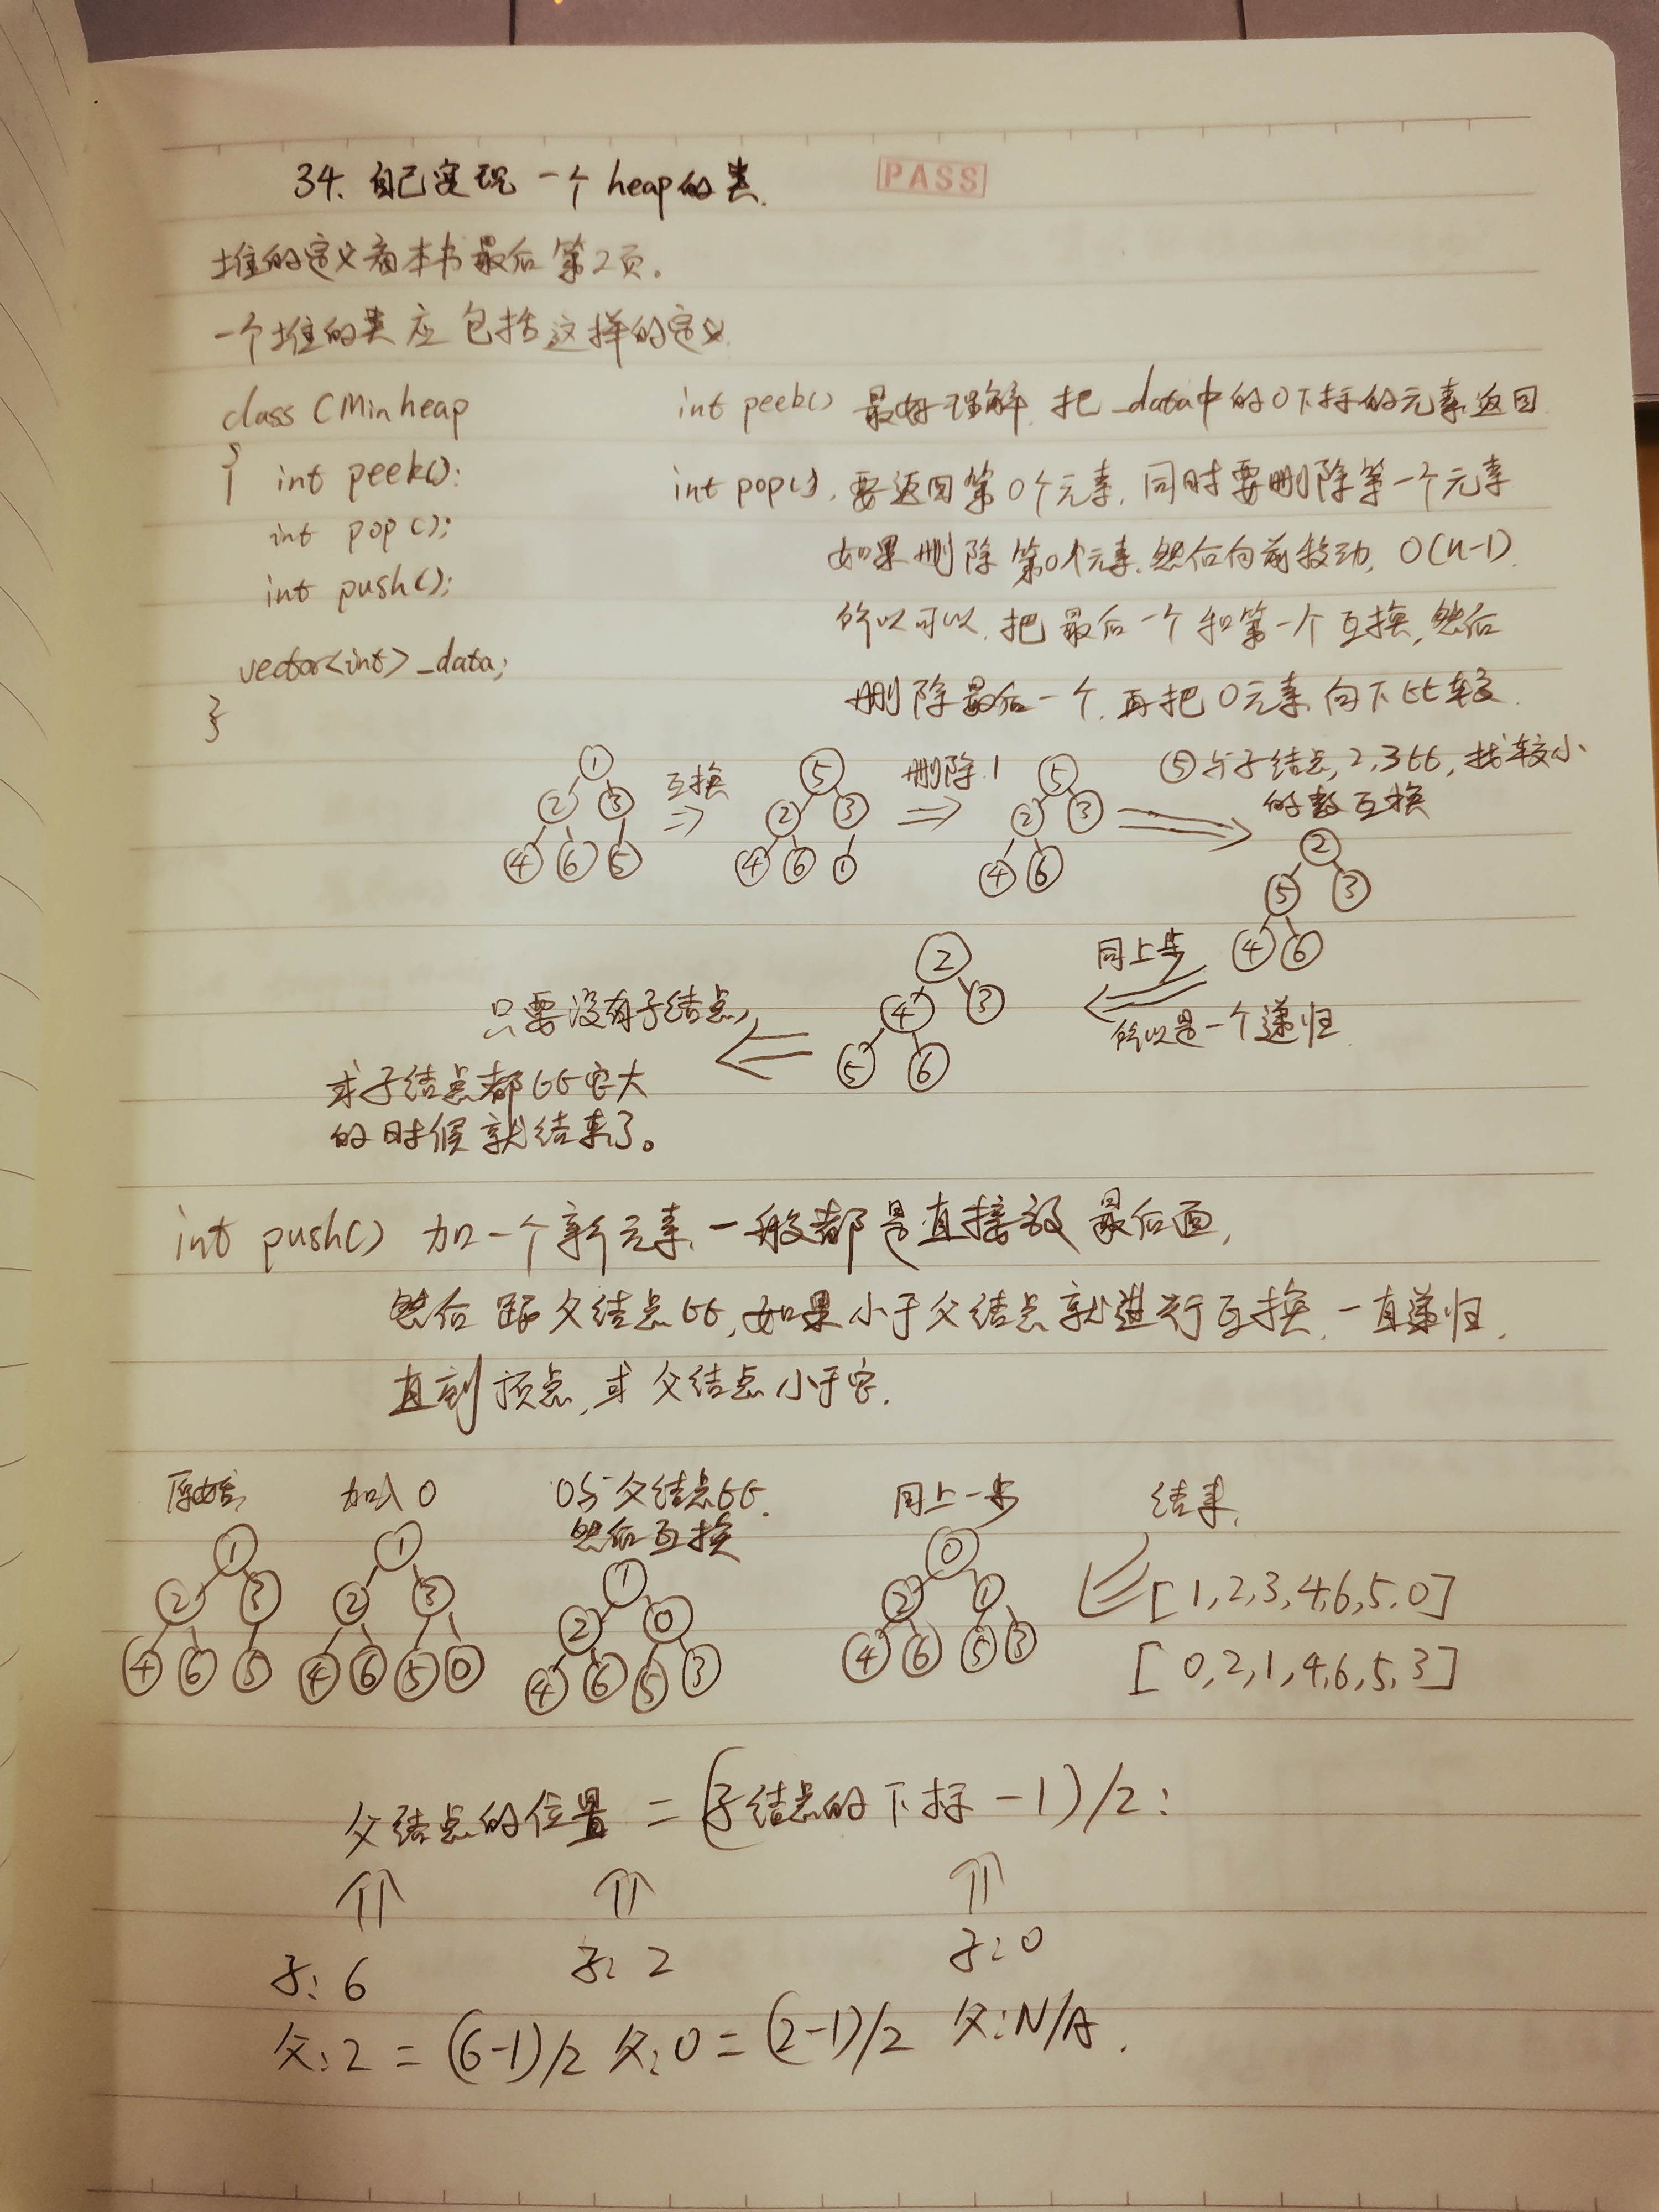 34. 自己实现一个heap的类.
PASS
堆的定义看本书最后第2页.
一个堆的类应包括这样的定义.
class CMinheap
{
int peek();
int pop();
int push();
vector<int> _data;
}
int peek() 最好理解. 把_data中的0下标的元素返回.
int pop(). 要返回第0个元素. 同时要删除第一个元素
如果删除第0个元素. 然后向前移动, O(n-1).
所以可以. 把最后一个和第一个互换, 然后
删除最后一个. 再把0元素向下比较.
1 2 3 4 6 5
互换
5 2 3 4 6 1
删除1
5 2 3 4 6
⑤与子结点, 2, 3比, 找较小
的数互换
2 5 3 4 6
同上步
所以是一个递归.
2 4 3 5 6
只要没有子结点,
或子结点都比它大
的时候就结束了。
int push() 加一个新元素, 一般都是直接放最后面,
然后跟父结点比, 如果小于父结点就进行互换, 一直递归,
直到顶点, 或父结点小于它.
原始
1 2 3 4 6 5
加入0
1 2 3 4 6 5 0
0与父结点比.
然后互换
1 2 0 4 6 5 3
同上一步
0 2 1 4 6 5 3
结果.
[1,2,3,4,6,5,0]
[0,2,1,4,6,5,3]
父结点的位置 = (子结点的下标 -1)/2:
子: 6 子: 2 子: 0
父: 2 = (6-1)/2 父: 0 = (2-1)/2 父: N/A.